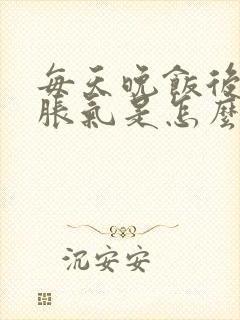 每天晚飯後
脹氣是怎麼
沉安安